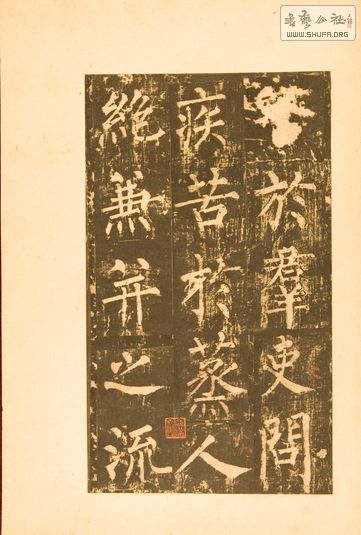 於羣吏問
疾苦於蒸人
絶兼并之流
書藝公社
WWW.SHUFA.ORG